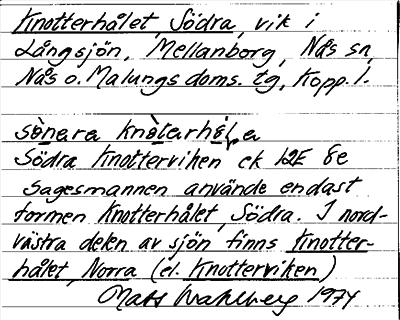 Knotterhålet, Södra, vik i
Långsjön, Mellanborg, Nås sn,
Nås o. Malungs doms. tg, Kopp. l.
sö̀nara knòtarhó̱ḷa
Södra Knotterviken ek 12E 8e
Sagesmannen använde endast
formen Knotterhålet, Södra. I nord-
västra delen av sjön finns Knotter-
hålet, Norra (el. Knotterviken)
Mats Wahlberg 1974